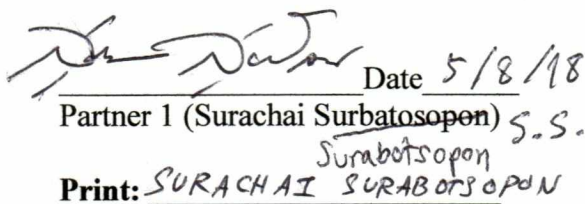 Date 5/8/18
Partner 1 (Surachai Surbatosopon) S.S.
Surabotsopon
Print: SURACHAI SURABOTSOPON